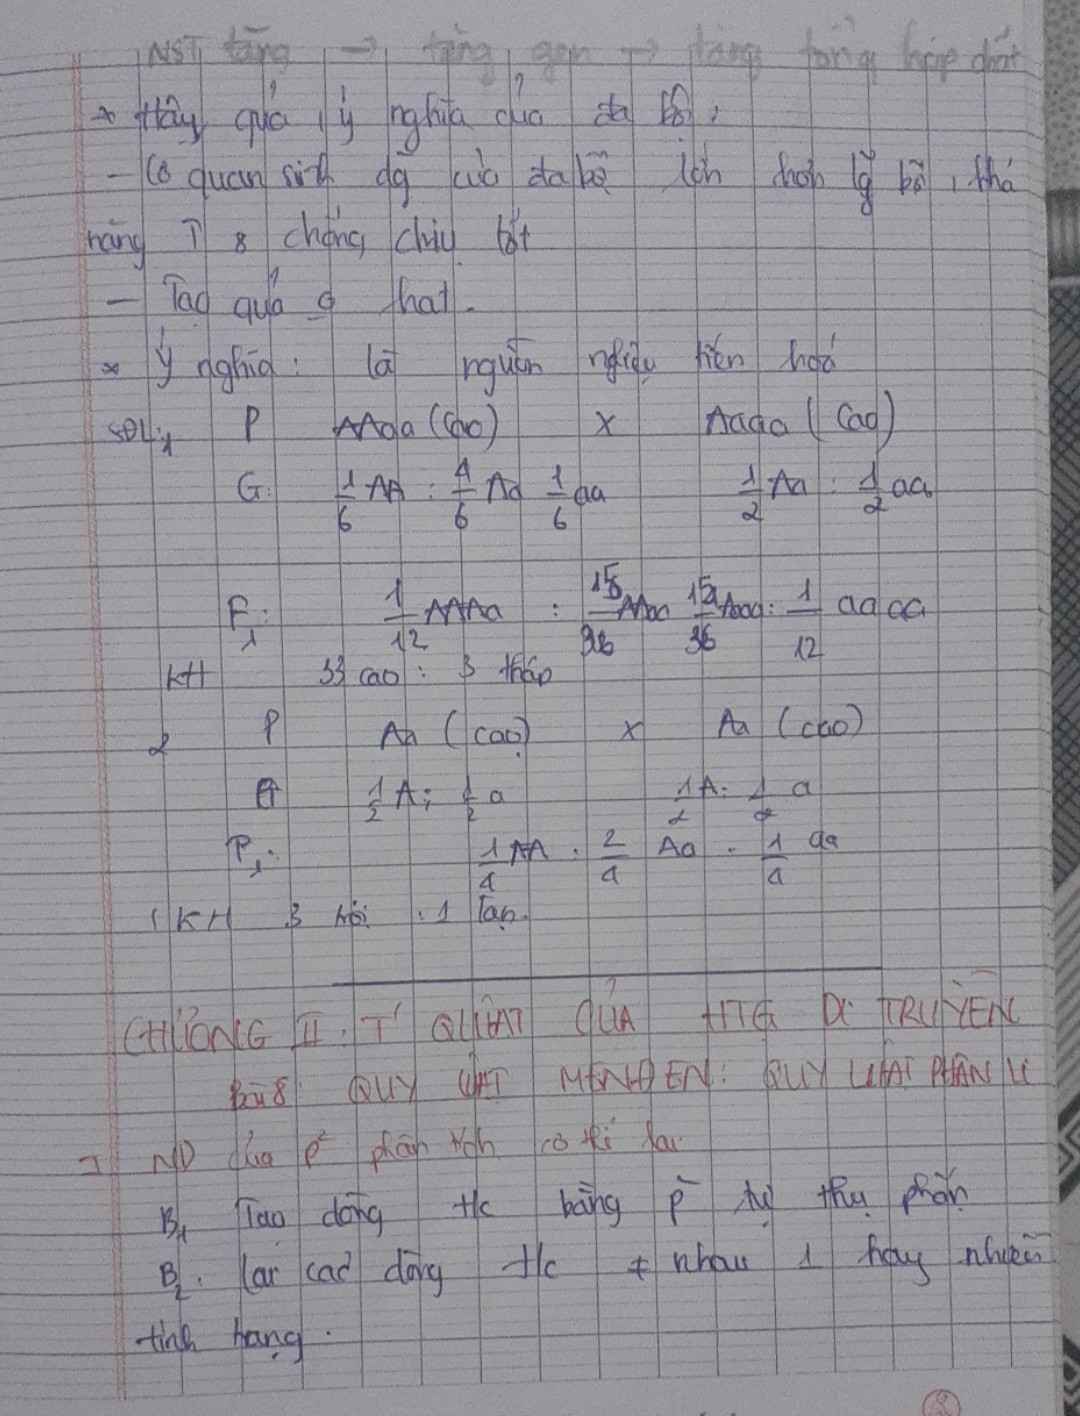 NST tăng → tăng gen → tăng tổng hợp chất
* Hậu quả, ý nghĩa của đa bộ:
- Cơ quan sinh dg của đa bộ lớn hơn lg bõ, khả
năng T & chống chịu tốt
- Tạo quả o hat.
* Ý nghĩa: là nguồn nliệu tiến hoá
SĐL:1 P AAaa (Cao) x Aaaa (Cao)
G: 1/6 AA : 4/6 Aa 1/6 aa 1/2 Aa : 1/2 aa
F1: 1/12 AAAa : 15/36 AAaa 15/36 Aaaa: 1/12 aaaa
KH 33 cao : 3 thấp
2 P Aa (cao) x Aa (cao)
G 1/2 A; 1/2 a 1/2 A: 1/2 a
F1: 1/4 AA : 2/4 Aa : 1/4 aa
KH 3 trội : 1 lặn.
CHƯƠNG II: T' QLUẬT CỦA HTG DI TRUYỀN
Bài 8: QUY LUẬT MENĐEN: QUY LUẬT PHÂN LI
I ND của p² phân tích cơ thể lai
B1 Tạo dòng tc bằng p² tự thụ phấn
B2. lai các dòng tc ≠ nhau 1 hay nhiều
tính trạng.